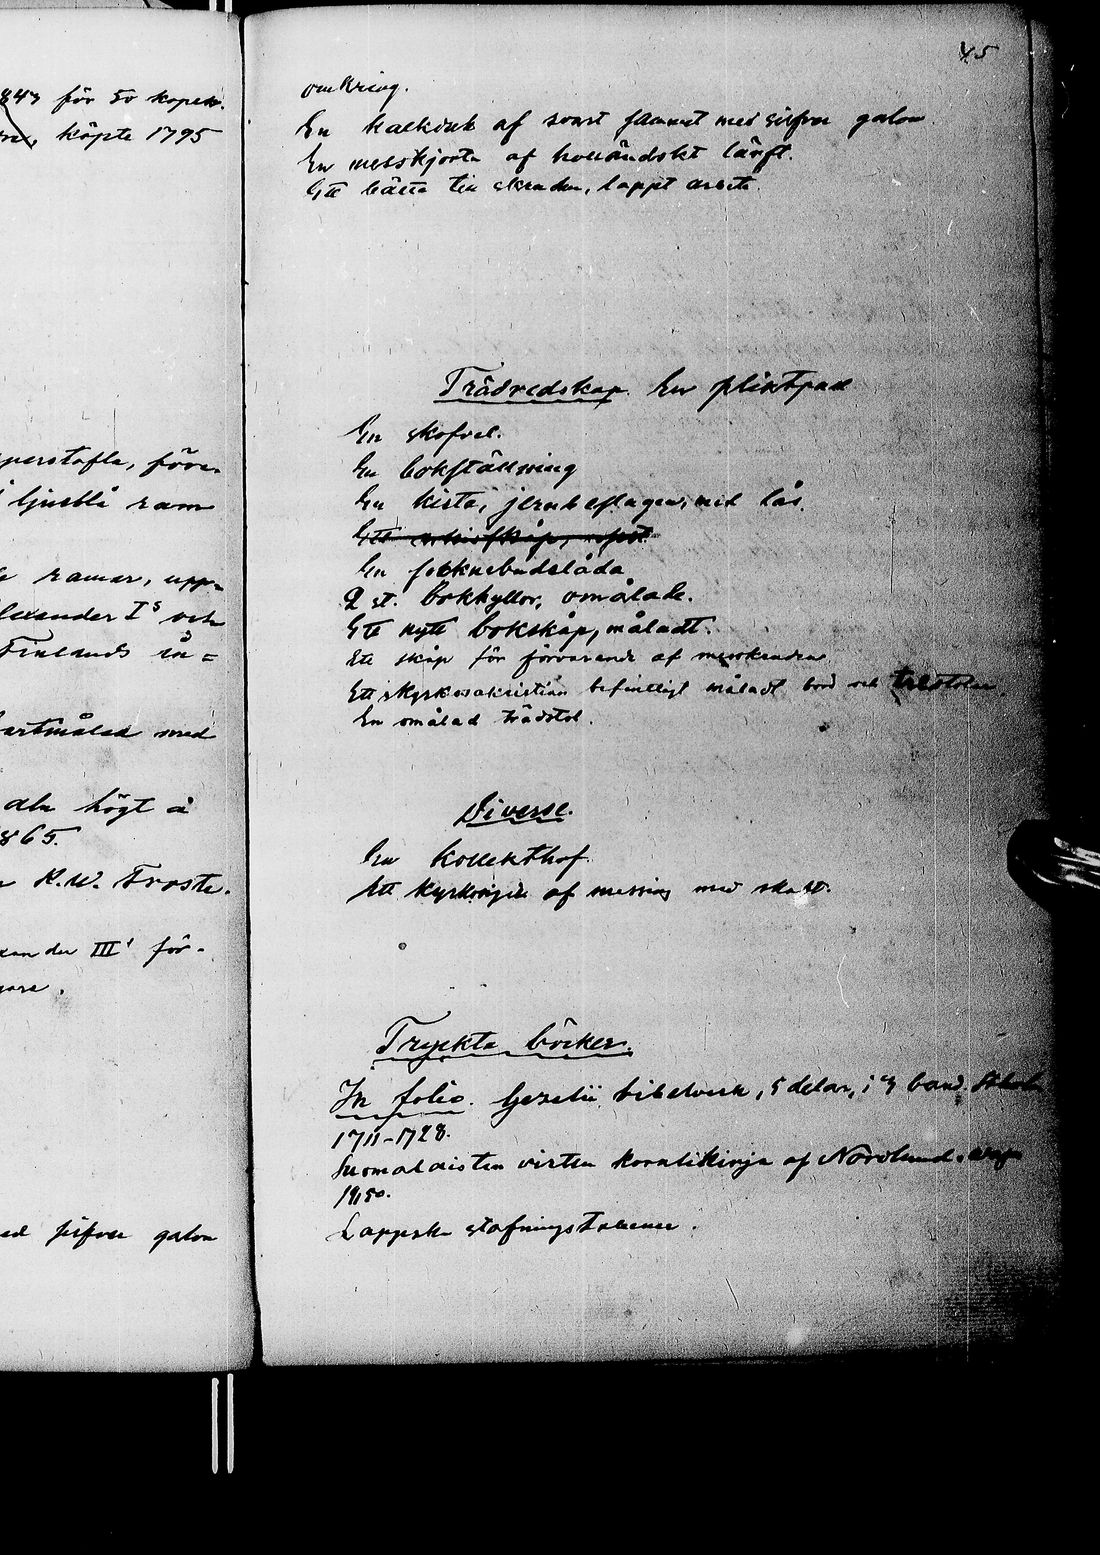 843 för 50 kopek.
köpte 1795
perstafla, före-
i ljusblå ram
ramar, upp-
lexander I's och
Finlands in=
artmålad med
aln högt å
865.
K.W. Froste.
xander III' för-
gare.
ed silfver galon
45
omkring.
En kalkduk af svart sammet med silfver galon
En messkjorta af holländskt lärft.
Ett bälte till skruden, lappt arbete.
Trädredskap. En pliktpall
En skofvel.
En bokställning
En kista, jernbeslagen, med lås.
Ett arkivskåp,
En sockenbudslåda
2 st. bokhyllor, omålade.
Ett nytt bokskåp, måladt.
Ett skåp för förvarande af messkruden
Ett i kyrkosakristian befintligt måladt bord och
En omålad trädstol.
Diverse.
En kollekthåf
Ett kyrksigill af messing med skaft.
Tryckta böcker.
In folio. Gezelii bibelverk, 5 delar, i 3 band.
1711-1728.
Suomalaisten virsten koraalikirja af Nordlund.
1850.
Lappska stafningstabeller.